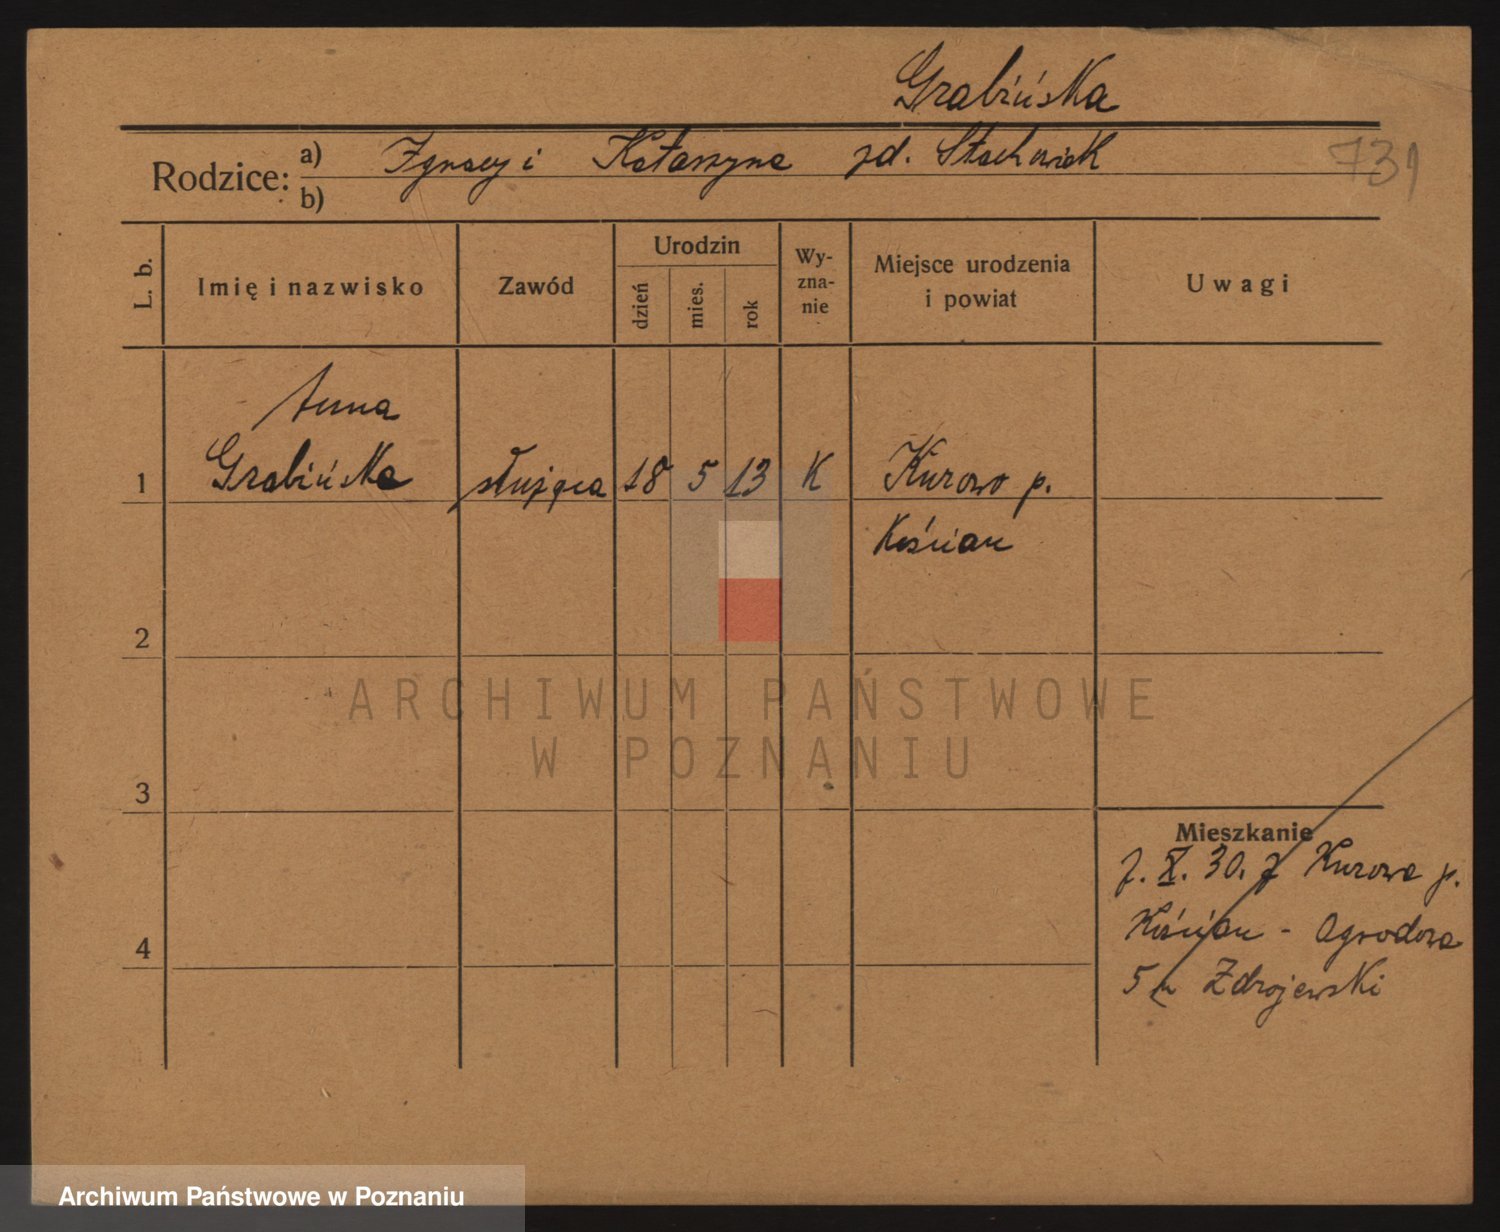 Grabińska
Rodzice: a) Ignacy i Katarzyna zd. Stachowiak
b)
731
L. b.
Imię i nazwisko
Zawód
Urodzin
dzień
mies.
rok
Wy-
zna-
nie
Miejsce urodzenia
i powiat
Uwagi
Anna
1 Grabińska służąca 18 5 13 K Kurowo p.
Kościan
2
3
4
Mieszkanie
7. X. 30. z Kurowa p.
Kościan - Ogrodowa
5 Zdrojewski
ARCHIWUM PAŃSTWOWE
W POZNANIU
Archiwum Państwowe w Poznaniu